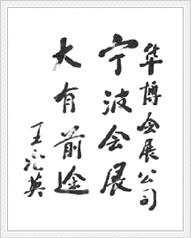 华博会展公司
宁波会展
大有前途